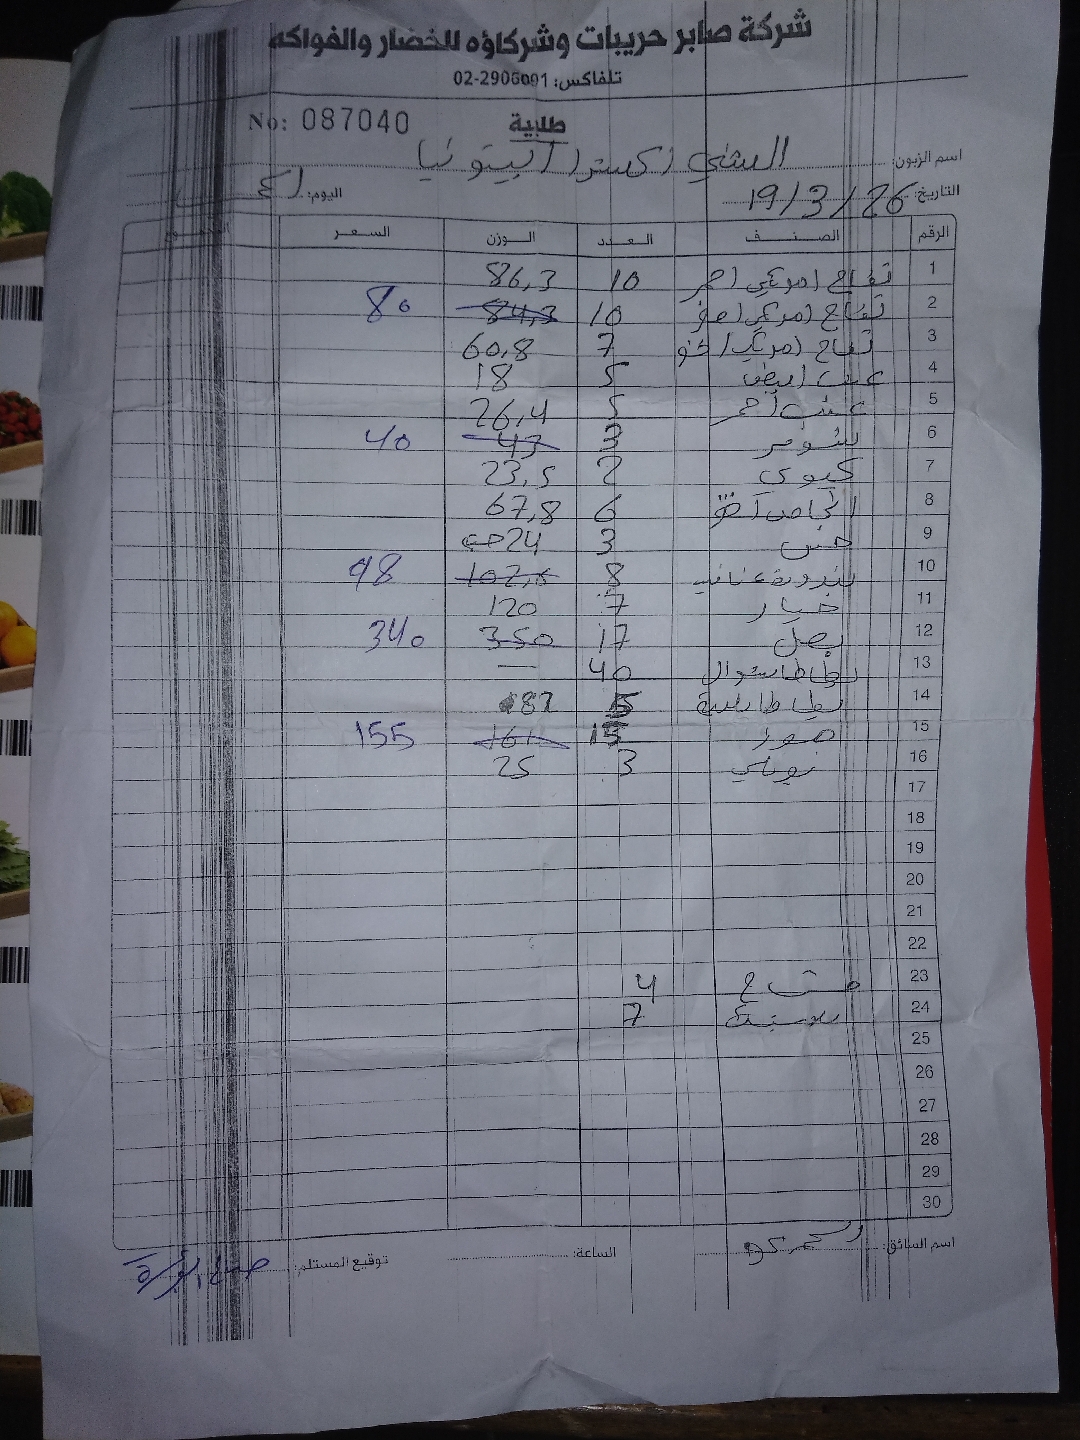 شركة صابر حريبات وشركاؤه للخضار والفواكه
تلفاكس: 02-2906091
No: 087040
طلبية
اسم الزبون: الشني اكسترا البيتونيا
التاريخ: 19/3/26 اليوم:
الرقم الصنف العدد الوزن السعر المجموع
1 تفاح امريكي احمر 10 86,3
2 تفاح امريكي اصفر 10 84,3 80
3 تفاح امريكي اخضر 7 60,8
4 عنب ابيض 5 18
5 عنب احمر 5 26,4
6 شومر 3 43 40
7 كيوي 2 23,5
8 6 67,8
9 خس 3 24 حبة
10 بندورة عناقيد 8 102,6 98
11 خيار 7 120
12 بصل 17 350 340
13 بطاطا شوال 40 —
14 بطاطا 5 87
15 موز 15 161 155
16 بوملي 3 25
17
18
19
20
21
22
23 مشتاح 4
24 بلاستيك 7
25
26
27
28
29
30
اسم السائق: الساعة: توقيع المستلم: